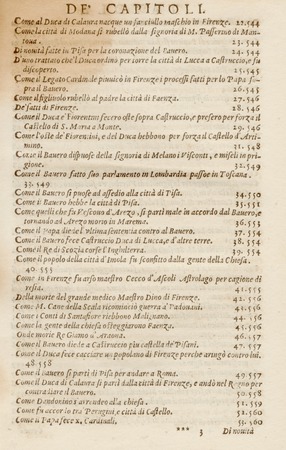 DE' CAPITOLI.
Come al Duca di Calaura nacque un fanciullo maschio in Firenze. 22.544
Come la città di Modana si rubellò dalla signoria di M. Passerino di Mantoua. 23.544
Di nouità fatte in Pisa per la coronatione del Bauero. 24.544
D'uno trattato che'l Duca ordinò per torre la città di Lucca a Castruccio, e fu discoperto. 25.545
Come il Legato Cardinale piuuicò in Firenze i processi fatti per lo Papa sopra il Bauero. 26.545
Come il figliuolo rubellò al padre la città di Faenza. 27.546
De' fatti di Firenze. 28.546
Come il Duca e' Fiorentini fecero oste sopra Castruccio, e presero per forza il Castello di S. Maria a Monte. 29.546
Come l'oste de' Fiorentini, e del Duca hebbono per forza il Castello d'Artimino. 31.548
Come il Bauero dispuose della signoria di Melano i Visconti, e miseli in prigione. 32.549
Come il Bauero fatto suo parlamento in Lombardia passoe in Toscana.
33.549
Come il Bauero si puose ad assedio alla città di Pisa. 34.550
Come il Bauero hebbe la città di Pisa. 35.551
Come quelli che fu Vescouo d'Arezo, si partì male in accordo dal Bauero, e tornando ad Arezo morìo in Marema. 36.553
Come il Papa diede l'ultima sentenza contro al Bauero. 37.554
Come il Bauero fece Castruccio Duca di Lucca, e d'altre terre. 38.554
Come il Re di Scotia corse l'Inghilterra. 39.554
Come il popolo della città d'Imola fu sconfitto dalla gente della Chiesa.
40.555
Come in Firenze fu arso maestro Cecco d'Ascoli Astrolago per cagione di resia. 41.555
Della morte del grande medico Maestro Dino di Firenze. 42.556
Come M. Cane della Scala ricominciò guerra a' Padouani. 43.556
Come i Conti di Santafiore riebbono Magliano. 44.556
Come la gente della chiesa osteggiarono Faenza. 45.556
Come morìo Re Giamo d'Araona. 46.556
Come il Bauero diede a Castruccio più castella de' Pisani. 47.557
Come il Duca fece cacciare uno popolano di Firenze perche arringò contro lui.
48.558
Come il Bauero si partì di Pisa per andare a Roma. 49.557
Come il Duca di Calaura si partì dalla città di Firenze, e andò nel Regno per contradiare il Bauero. 50.558
Come tornò alla chiesa. 51.559
Come fu accordo tra Perugini, e città di Castello. 52.560
Come il Papa fece x. Cardinali. 53.560
*** 3 Di nouità